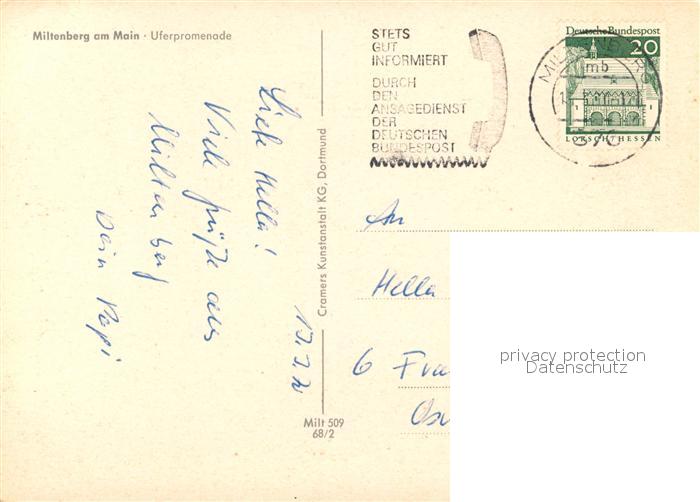 Miltenberg am Main · Uferpromenade
STETS
GUT
INFORMIERT
DURCH
DEN
ANSAGEDIENST
DER
DEUTSCHEN
BUNDESPOST
Deutsche Bundespost
20
LORSCH/HESSEN
mb
Liebe Hella!
Viele Grüße aus
Miltenberg
Dein Papi
Cramers Kunstanstalt KG, Dortmund
Milt 509
68/2
An
Hella
6 Fra
privacy protection
Datenschutz